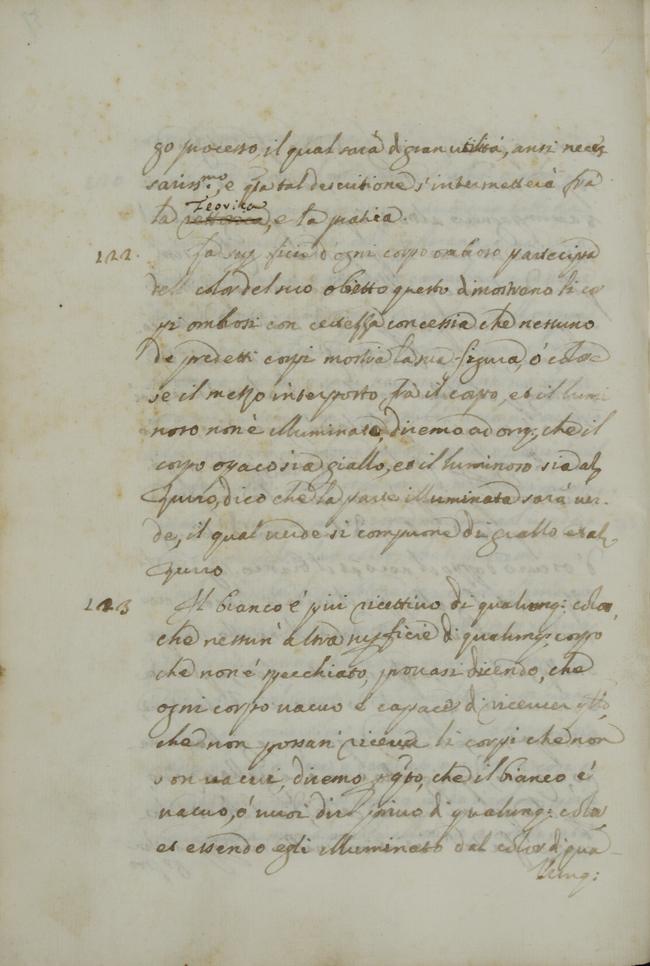 go processo, il qual sarà di gran utilità, anzi neces
sariss.mo, e q.ta tal descritione s'intermetterà fra
la Teorica, e la pratica.
122. La superficie d'ogni corpo ombroso partecipa
del color del suo obietto questo dimostrano li cor
pi ombrosi con certezza concessia che nessuno
de predetti corpi mostra la sua figura, ó colore
se il mezzo interposto, frà il corpo, et il lumi
noso non è illuminato, diremo adonq; che il
corpo opaco sia giallo, et il luminoso sia az
zurro, dico che la parte illuminata sarà ver-
de, il qual verde si compone di giallo et az
zurro
123 Il bianco é piu ricettivo di qualunq: color,
che nessun' altra superficie di qualunq; corpo
che non é specchiato, provasi dicendo, che
ogni corpo vacuo é capace di ricever q.llo,
che non possan ricever li corpi che non
son vacui, diremo p q.to, che il bianco é
vacuo, ó vuoi dir privo di qualunq: color
et essendo egli illuminato dal color di qua-
lunq: